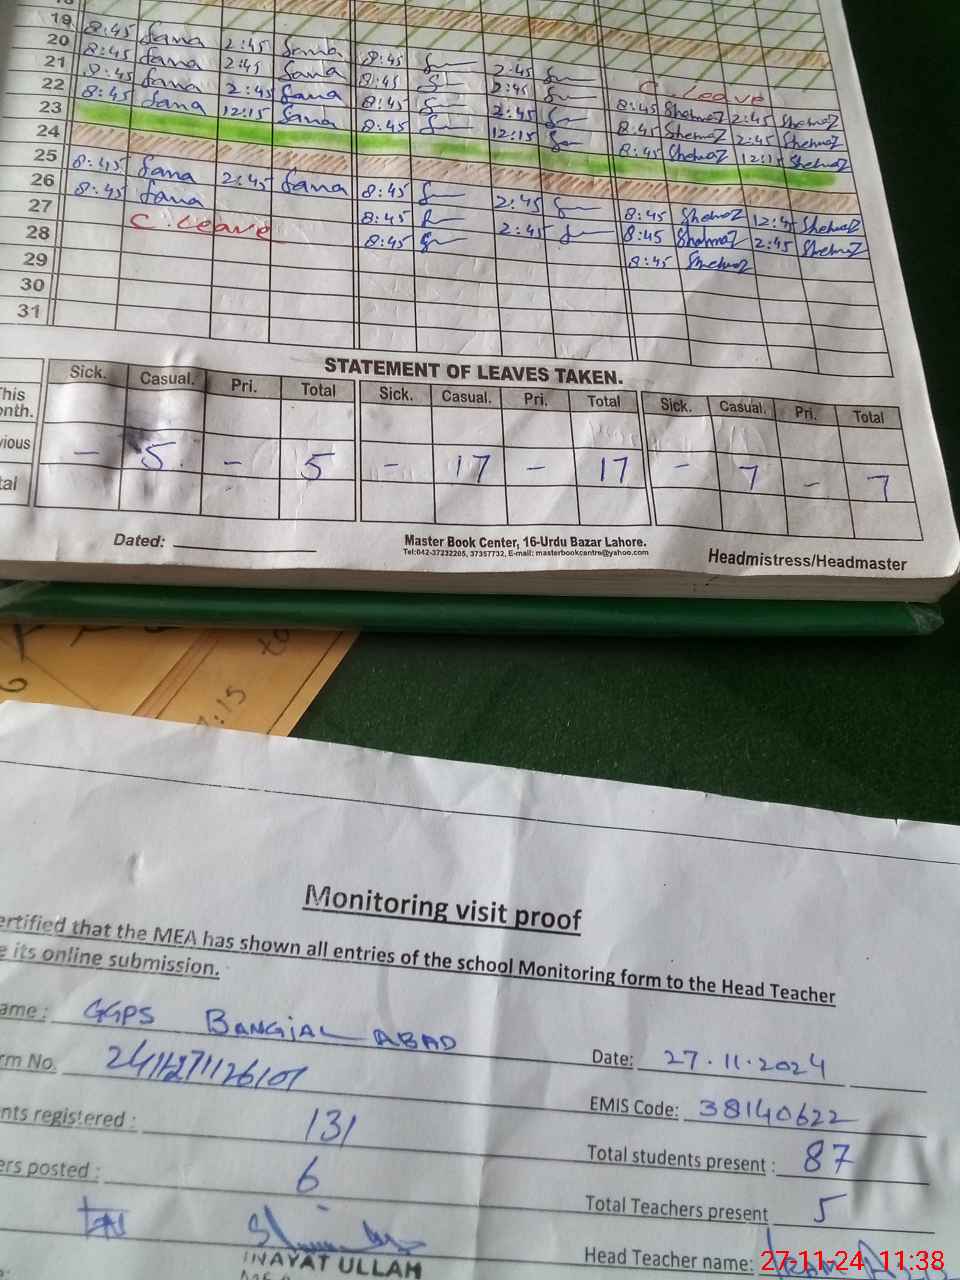 19
20 8:45 Sana 2:45 Sana 8:45 2:45
21 8:45 Sana 2:45 Sana 8:45 2:45 C.Leave
22 8:45 Sana 2:45 Sana 8:45 2:45 8:45 ShehnaZ 2:45 ShehnaZ
23 8:45 Sana 12:15 Sana 8:45 12:15 8:45 ShehnaZ 2:45 ShehnaZ
24 8:45 ShehnaZ 12:15 ShehnaZ
25
26 8:45 Sana 2:45 Sana 8:45 2:45
27 8:45 Sana 8:45 2:45 8:45 ShehnaZ 12:45 ShehnaZ
28 C.Leave 8:45 8:45 ShehnaZ 2:45 ShehnaZ
29 8:45 ShehnaZ
30
31
STATEMENT OF LEAVES TAKEN.
Sick. Casual. Pri. Total Sick. Casual. Pri. Total Sick. Casual. Pri. Total
This
onth.
vious - 5 - 5 - 17 - 17 - 7 - 7
tal
Dated:
Master Book Center, 16-Urdu Bazar Lahore.
Tel:042-37232205, 37357732, E-mail: masterbookcentre@yahoo.com
Headmistress/Headmaster
:15 to
Monitoring visit proof
ertified that the MEA has shown all entries of the school Monitoring form to the Head Teacher
e its online submission.
ame : GGPS BANGIAL ABAD
Date: 27.11.2024
rm No.
EMIS Code: 38140622
nts registered : 131
Total students present : 87
ers posted : 6
Total Teachers present 5
INAYAT ULLAH
MEA
Head Teacher name:
27-11-24 11:38